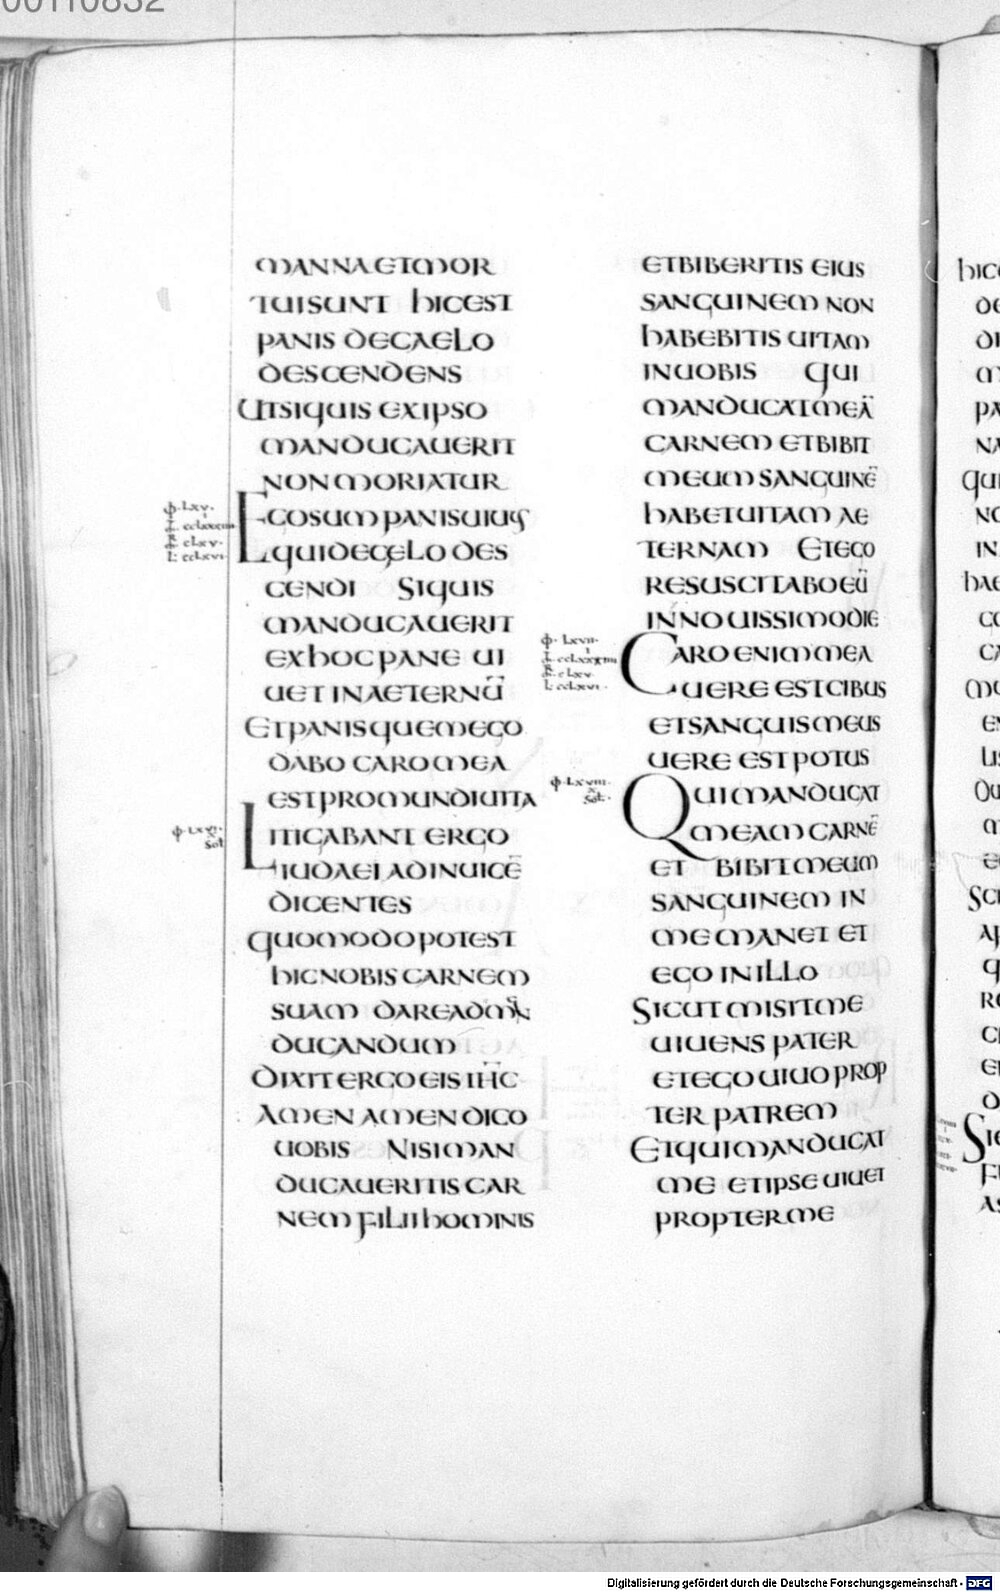 00110832
MANNA ET MOR
TUI SUNT HIC EST
PANIS DE CAELO
DESCENDENS
UT SI QUIS EX IPSO
MANDUCAUERIT
NON MORIATUR
EGO SUM PANIS UIUUS
QUI DE CELO DES
CENDI SI QUIS
MANDUCAUERIT
EX HOC PANE UI
UET IN AETERNŪ
ET PANIS QUEM EGO
DABO CARO MEA
EST PRO MUNDI UITA
LITIGABANT ERGO
IUDAEI AD INUICĒ
DICENTES
QUOMODO POTEST
HIC NOBIS CARNEM
SUAM DARE AD MAN
DUCANDUM
DIXIT ERGO EIS IHC
AMEN AMEN DICO
UOBIS NISI MAN
DUCAUERITIS CAR
NEM FILII HOMINIS
ET BIBERITIS EIUS
SANGUINEM NON
HABEBITIS UITAM
IN UOBIS QUI
MANDUCAT MEĀ
CARNEM ET BIBIT
MEUM SANGUINĒ
HABET UITAM AE
TERNAM ET EGO
RESUSCITABO EŪ
IN NOUISSIMO DIE
CARO ENIM MEA
UERE EST CIBUS
ET SANGUIS MEUS
UERE EST POTUS
QUI MANDUCAT
MEAM CARNĒ
ET BIBIT MEUM
SANGUINEM IN
ME MANET ET
EGO IN ILLO
SICUT MISIT ME
UIUENS PATER
ET EGO UIUO PROP
TER PATREM
ET QUI MANDUCAT
ME ET IPSE UIUET
PROPTER ME
Digitalisierung gefördert durch die Deutsche Forschungsgemeinschaft - DFG